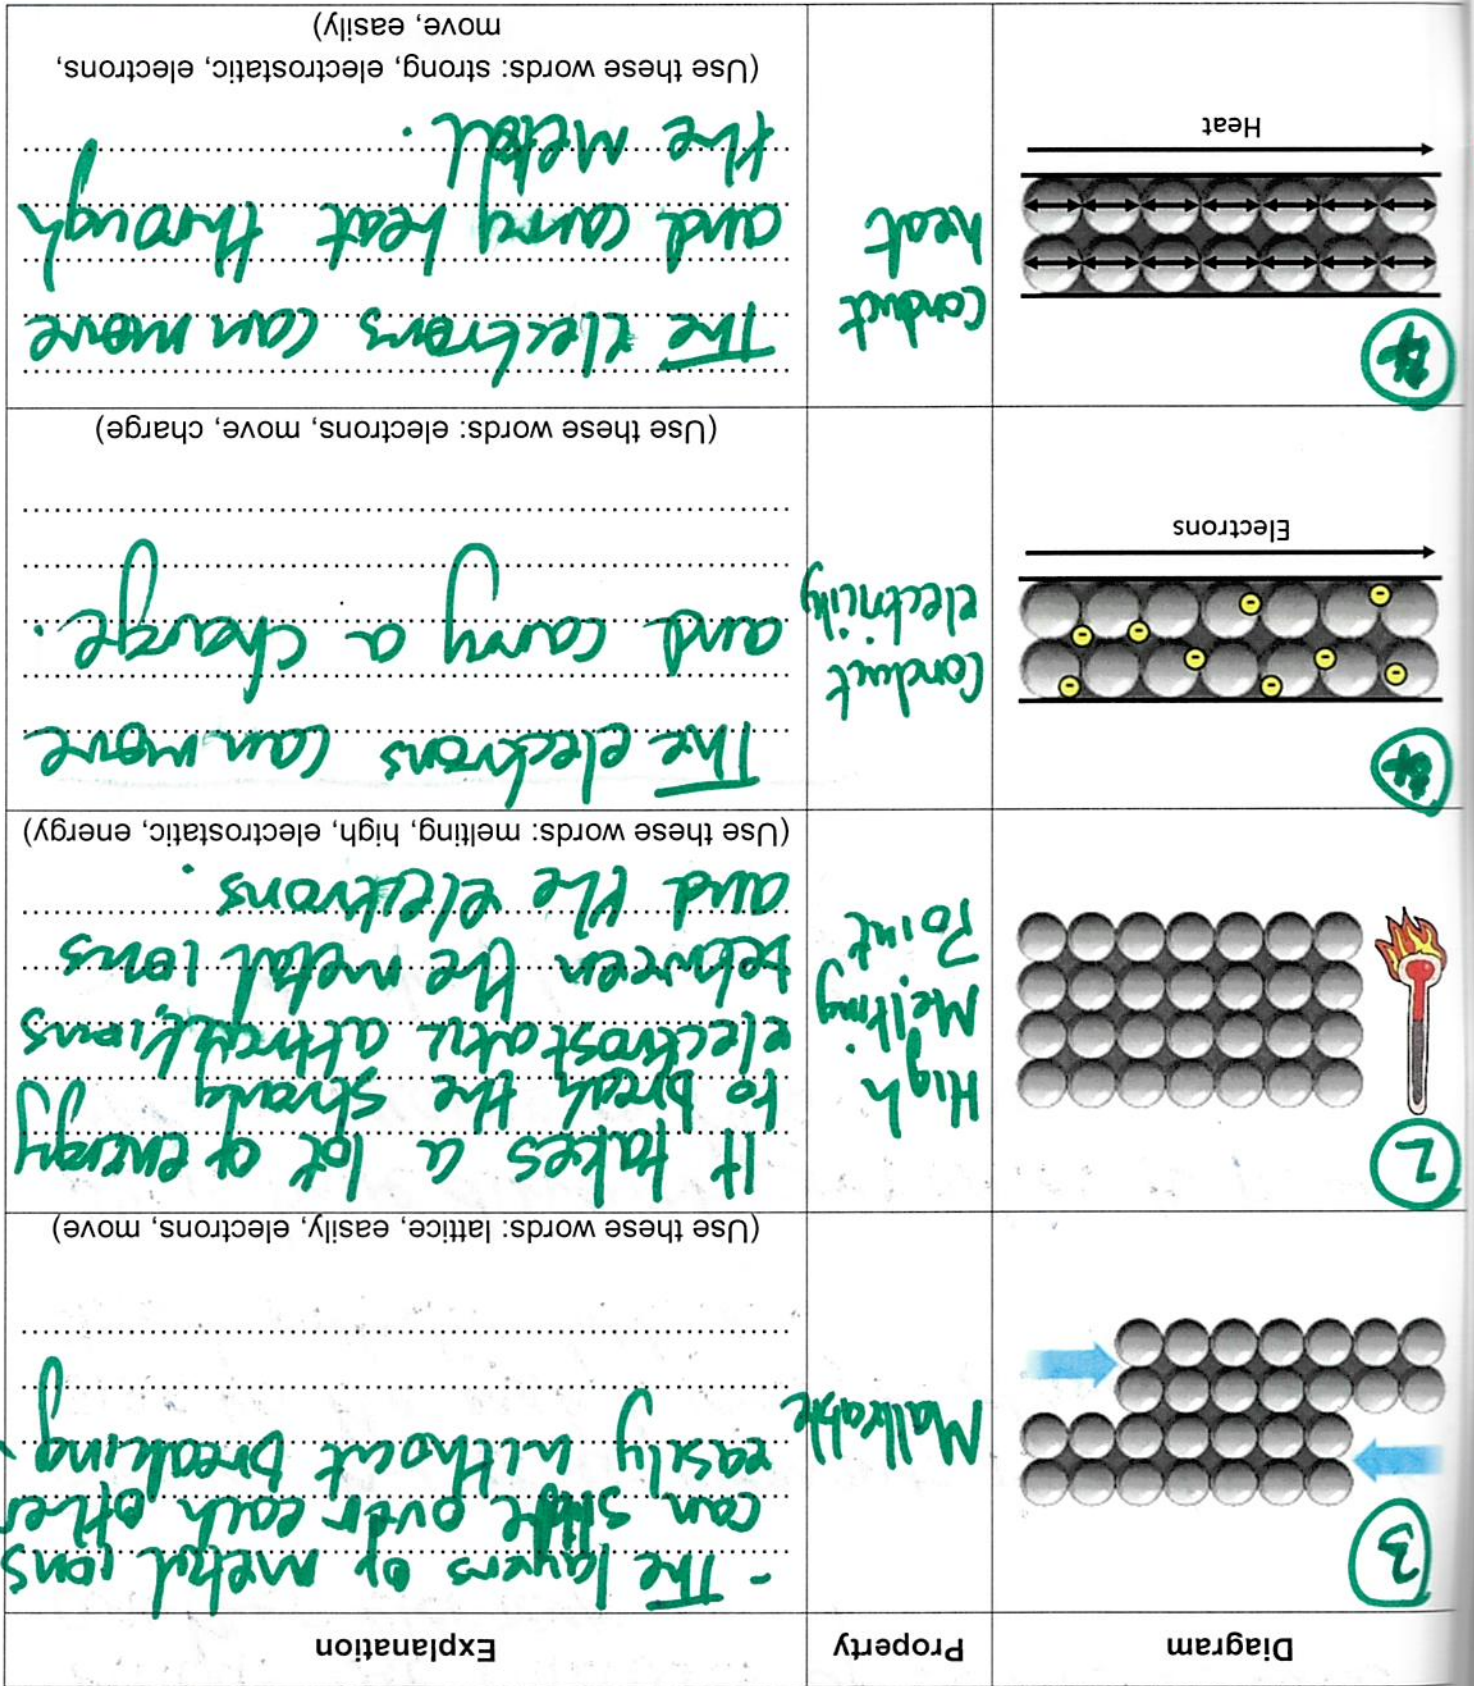 Diagram
Property
Explanation
3
Malleable
- The layers of metal ions
can slide over each other
easily without breaking.
(Use these words: lattice, easily, electrons, move)
2
High
Melting
Point
It takes a lot of energy
to break the strong
electrostatic attractions
between the metal ions
and the electrons.
(Use these words: melting, high, electrostatic, energy)
Electrons
Conduct
electricity
The electrons can move
and carry a charge.
(Use these words: electrons, move, charge)
Heat
Conduct
heat
The electrons can move
and carry heat through
the metal.
(Use these words: strong, electrostatic, electrons,
move, easily)